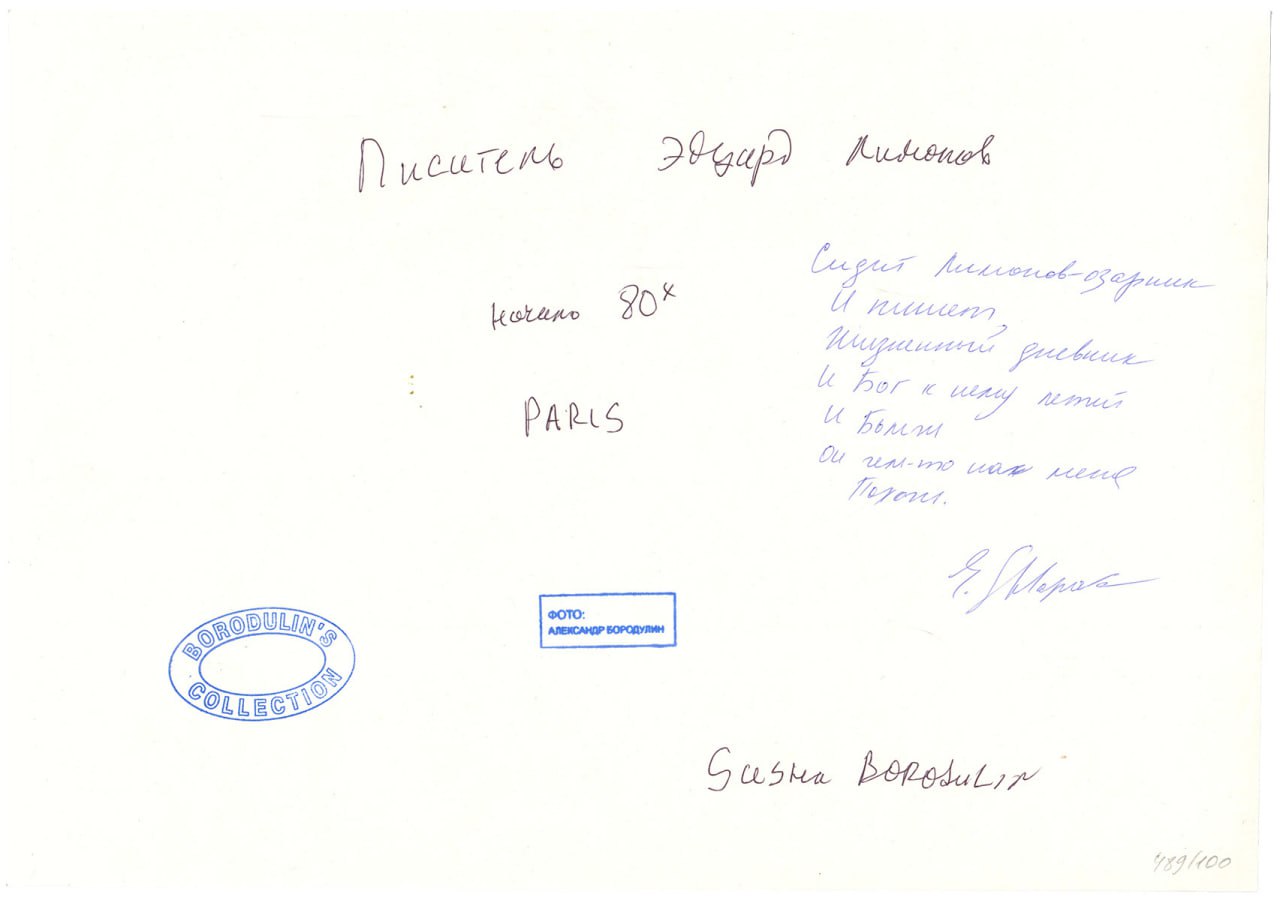 Писатель Эдуард Лимонов
начало 80х
PARIS
Сидит Лимонов-озарник
И пишет,
Жизненный дневник
И Бог к нему летит
И Бомж
Он чем-то на меня
Похож.
BORODULIN'S
COLLECTION
ФОТО:
АЛЕКСАНДР БОРОДУЛИН
Sasha BORODULIN
489/100